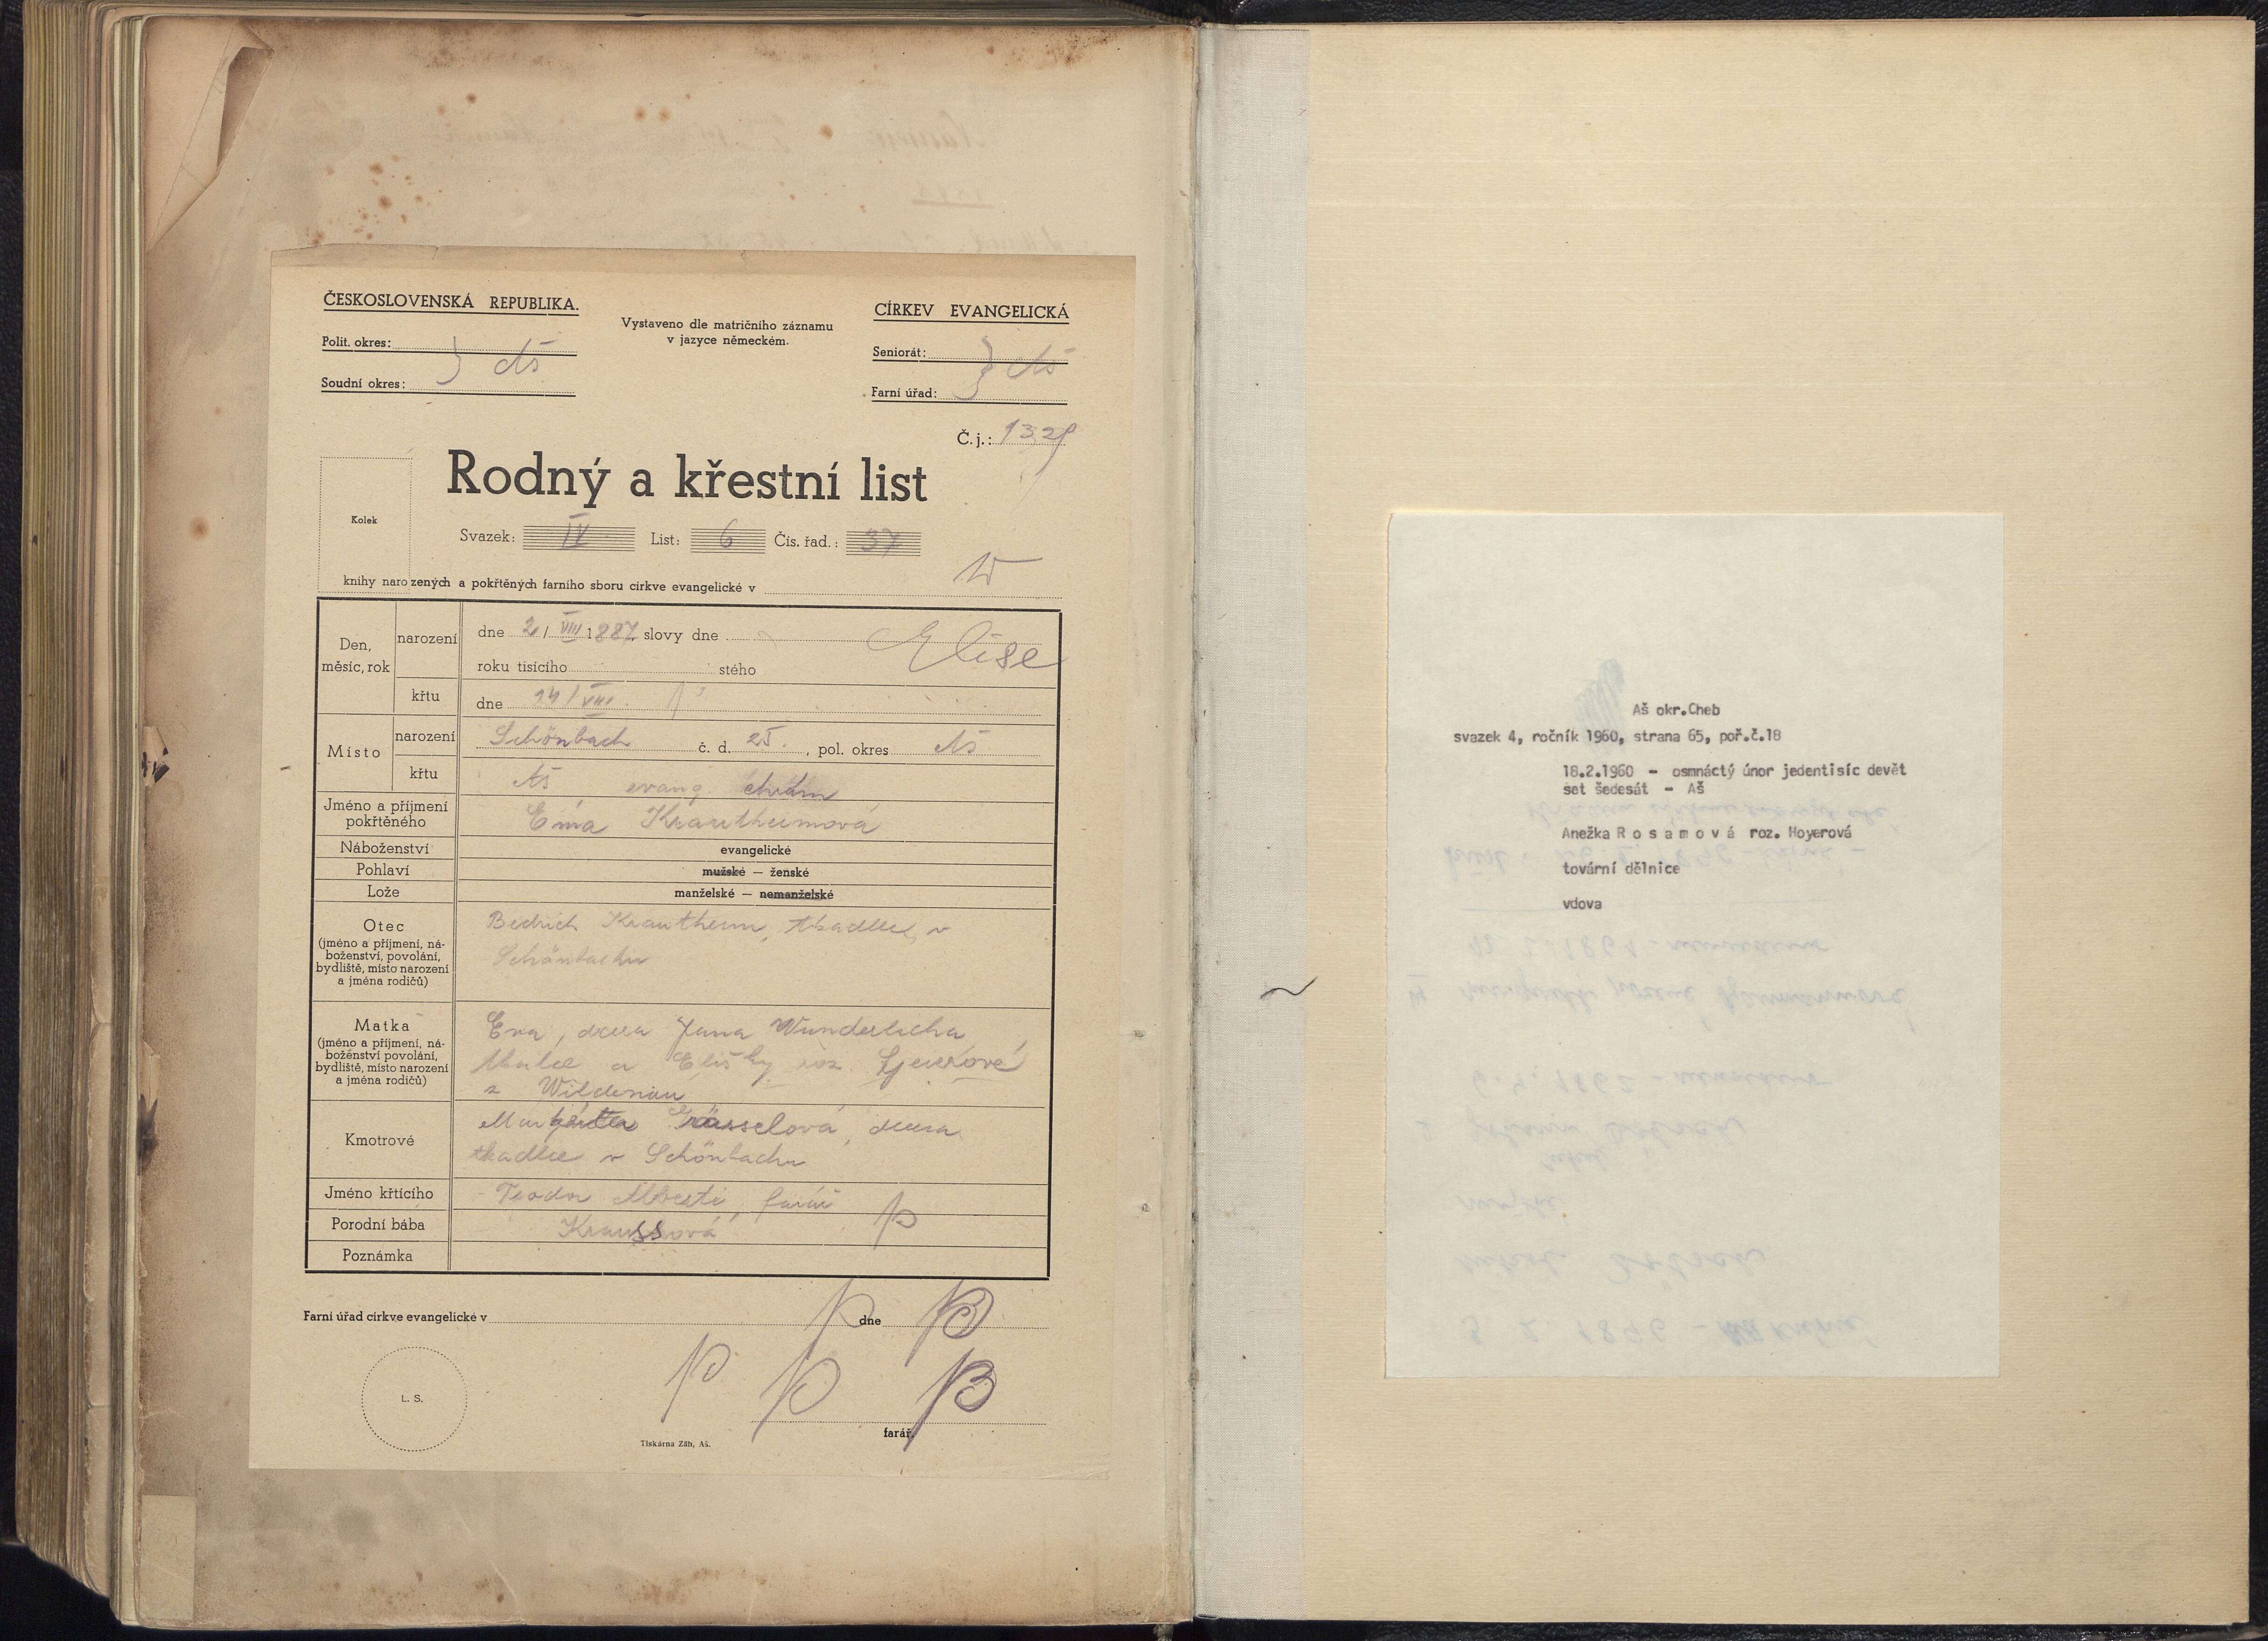 ČESKOSLOVENSKÁ REPUBLIKA.
Polit. okres:
Soudní okres:
} Aš
Vystaveno dle matričního záznamu
v jazyce německém.
CÍRKEV EVANGELICKÁ
Seniorát:
Farní úřad:
} Aš
Č. j.: 1329
Rodný a křestní list
Kolek
Svazek: IV List: 6 Čís. řad.: 37
knihy narozených a pokřtěných farního sboru církve evangelické v
Den,
měsíc, rok
narození
dne 2/VIII 1887 slovy dne
Elise
roku tisícího stého
křtu
dne 14/VIII.
Místo
narození
Schönbach č. d. 25. , pol. okres Aš
křtu
Aš evang. chrám
Jméno a příjmení
pokřtěného
Ema Krautheimová
Náboženství
evangelické
Pohlaví
mužské — ženské
Lože
manželské — nemanželské
Otec
(jméno a příjmení, ná-
boženství, povolání,
bydliště, místo narození
a jména rodičů)
Bedřich Krautheim, tkadlec v
Schönbachu
Matka
(jméno a příjmení, ná-
boženství povolání,
bydliště, místo narození
a jména rodičů)
Eva, dcera Jana Wunderlicha,
tkalce a Elišky roz.
z Wildenau
Kmotrové
Margareta Grässelová, dcera
tkadlce v Schönbachu
Jméno křtícího
Teodor Alberti, farář
Porodní bába
Kraussová
Poznámka
Farní úřad církve evangelické v dne
L. S.
farář.
Tiskárna Záh, Aš.
Aš okr.Cheb
svazek 4, ročník 1960, strana 65, poř.č.18
18.2.1960 - osmnáctý únor jedentisíc devět
set šedesát - Aš
Anežka R o s a m o v á roz. Hoyerová
tovární dělnice
vdova